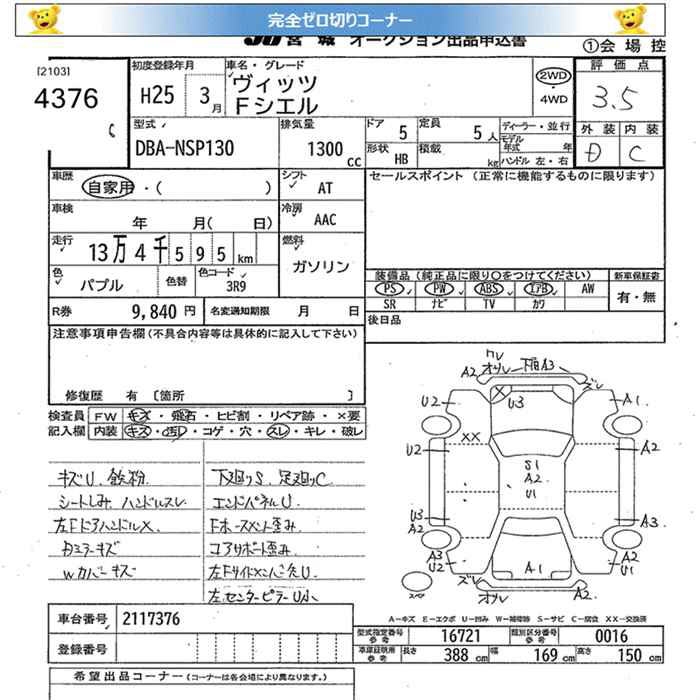 完全ゼロ切りコーナー
JU宮城 オークション出品申込書
①会場控
[2103]
4376
初度登録年月 H25 3月
車名・グレード ヴィッツ
Fシエル
2WD
4WD
評価点
3.5
外装 内装
D C
型式 DBA-NSP130
排気量 1300cc
ドア 5
定員 5人
ディーラー・並行
モデル年式 年
形状 HB
積載 kg
ハンドル 左・右
車歴 自家用・( )
シフト AT
セールスポイント (正常に機能するものに限ります)
車検 年 月( 日)
冷房 AAC
走行 13万4千595km
燃料 ガソリン
色 パプル
色替
色コード 3R9
装備品(純正品に限り○をつけてください)
新車保証書
PS PW ABS エアB AW
SR ナビ TV カワ
有・無
R券 9,840円
名変通知期限 月 日
後日品
注意事項申告欄(不具合内容等は具体的に記入して下さい)
修復歴 有 [箇所 ]
検査員記入欄
FW キズ・飛石・ヒビ割・リペア跡・×要
内装 キズ・汚れ・コゲ・穴・スレ・キレ・破レ
キズU、鉄粉
シートしみ、ハンドルスレ
左FドアハンドルX
Wカバーキズ
下廻りS、足廻りC
エンドパネルU
コアサポート歪み
左FサイドメンバーU
ワレ
オソレ 下回A3
A2 ズレ
U2 U3 A1
XX
U2 A2
S1
A2
U1
U3 A3
A2
A3 A2
U2 U1
ズレ A1
オソレ A2
スペア
車台番号 2117376
登録番号
A-キズ E-エクボ U-凹み W-補修跡 S-サビ C-腐食 XX-交換済
型式指定番号参考 16721
類別区分番号参考 0016
車庫証明用参考 長さ 388cm 幅 169cm 高さ 150cm
希望出品コーナー(コーナーは各会場により異なります。)